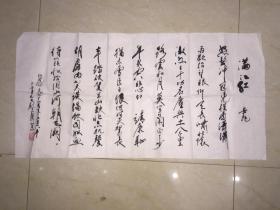 满江红 岳飞
怒发冲冠凭栏处潇潇
雨歇抬望眼仰天长啸壮怀
激烈三十功名尘与土八千里
路云和月莫等闲白了少
年头空悲切靖康耻
犹未雪臣子恨何时灭驾长
车踏破贺兰山缺壮志饥餐
胡虏肉笑谈渴饮匈奴血
待从头收拾旧山河朝天阙